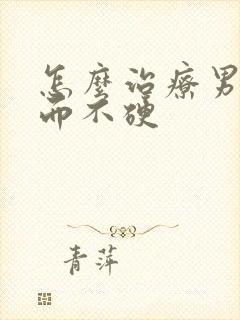 怎麼治療男
而不硬
青萍